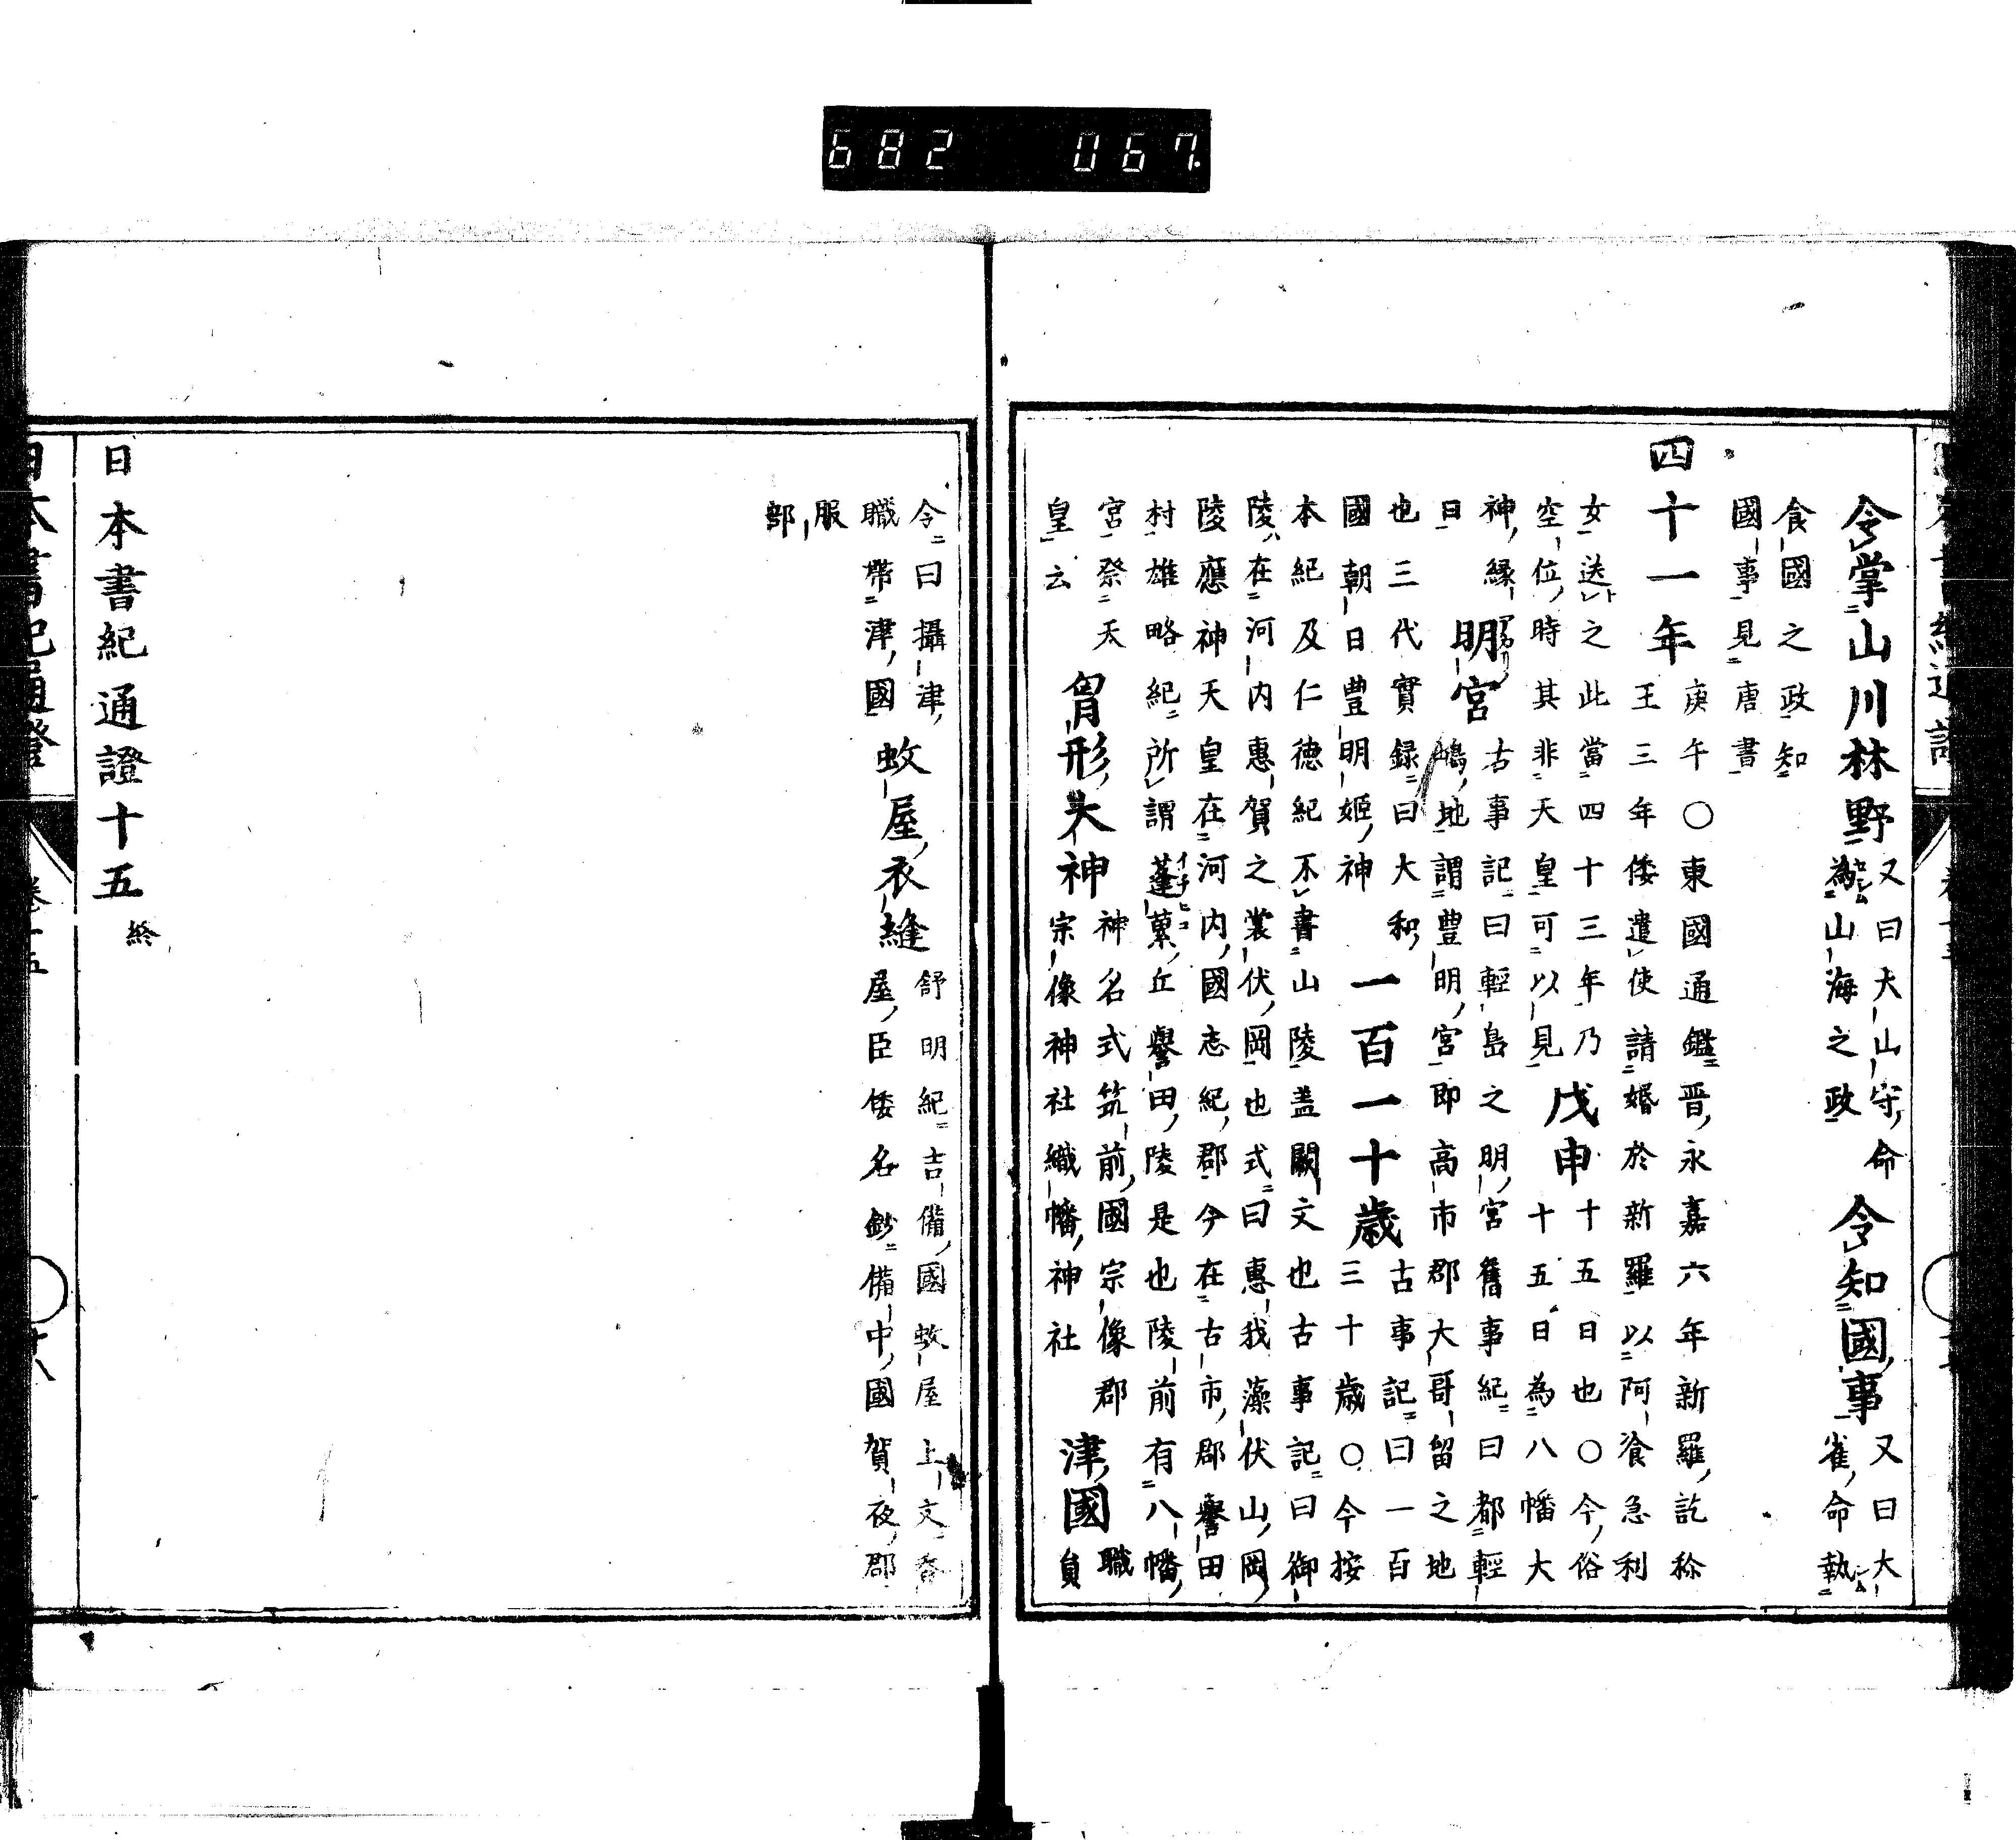 682 067
令掌山川林野 又曰大山守命
為山海之政
令知國事 又曰大
雀命執
食國之政知
國事見唐書
四十一年 庚午○東國通鑑晋永嘉六年新羅訖稌
王三年倭遣使請婚於新羅以阿飡急利
女送之此當四十三年乃
空位時其非天皇可以見
戊申 十五日也○今俗
十五日為八幡大
神縁
日
明宮 古事記曰輕島之明宮舊事紀曰都輕
嶋地謂豐明宮即高市郡大哥留之地
也三代實録曰大和
國朝日豊明姫神
一百一十歳 古事記曰一百
三十歳○今按
本紀及仁德紀不書山陵盖闕文也古事記曰御
陵在河内惠賀之裳伏岡也式曰惠我藻伏山岡
陵應神天皇在河内國志紀郡今在古市郡譽田
村雄略紀所謂蓬蔂丘譽田陵是也陵前有八幡
宮祭天
皇云
胷形大神 神名式筑前國宗像郡
宗像神社織幡神社
津國 職
員
令曰攝津
職帶津國
蚊屋衣縫 舒明紀吉備國蚊屋
屋臣倭名鈔備中國賀夜郡
服
部
日本書紀通證十五 終